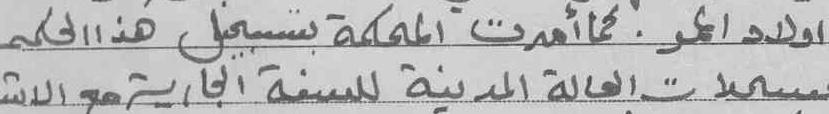 اولاد اعمر . كما أمرت المحكمة بتسجيل هذا الحكم
بسجلات الحالة المدنية للسنة الجارية مع الاش